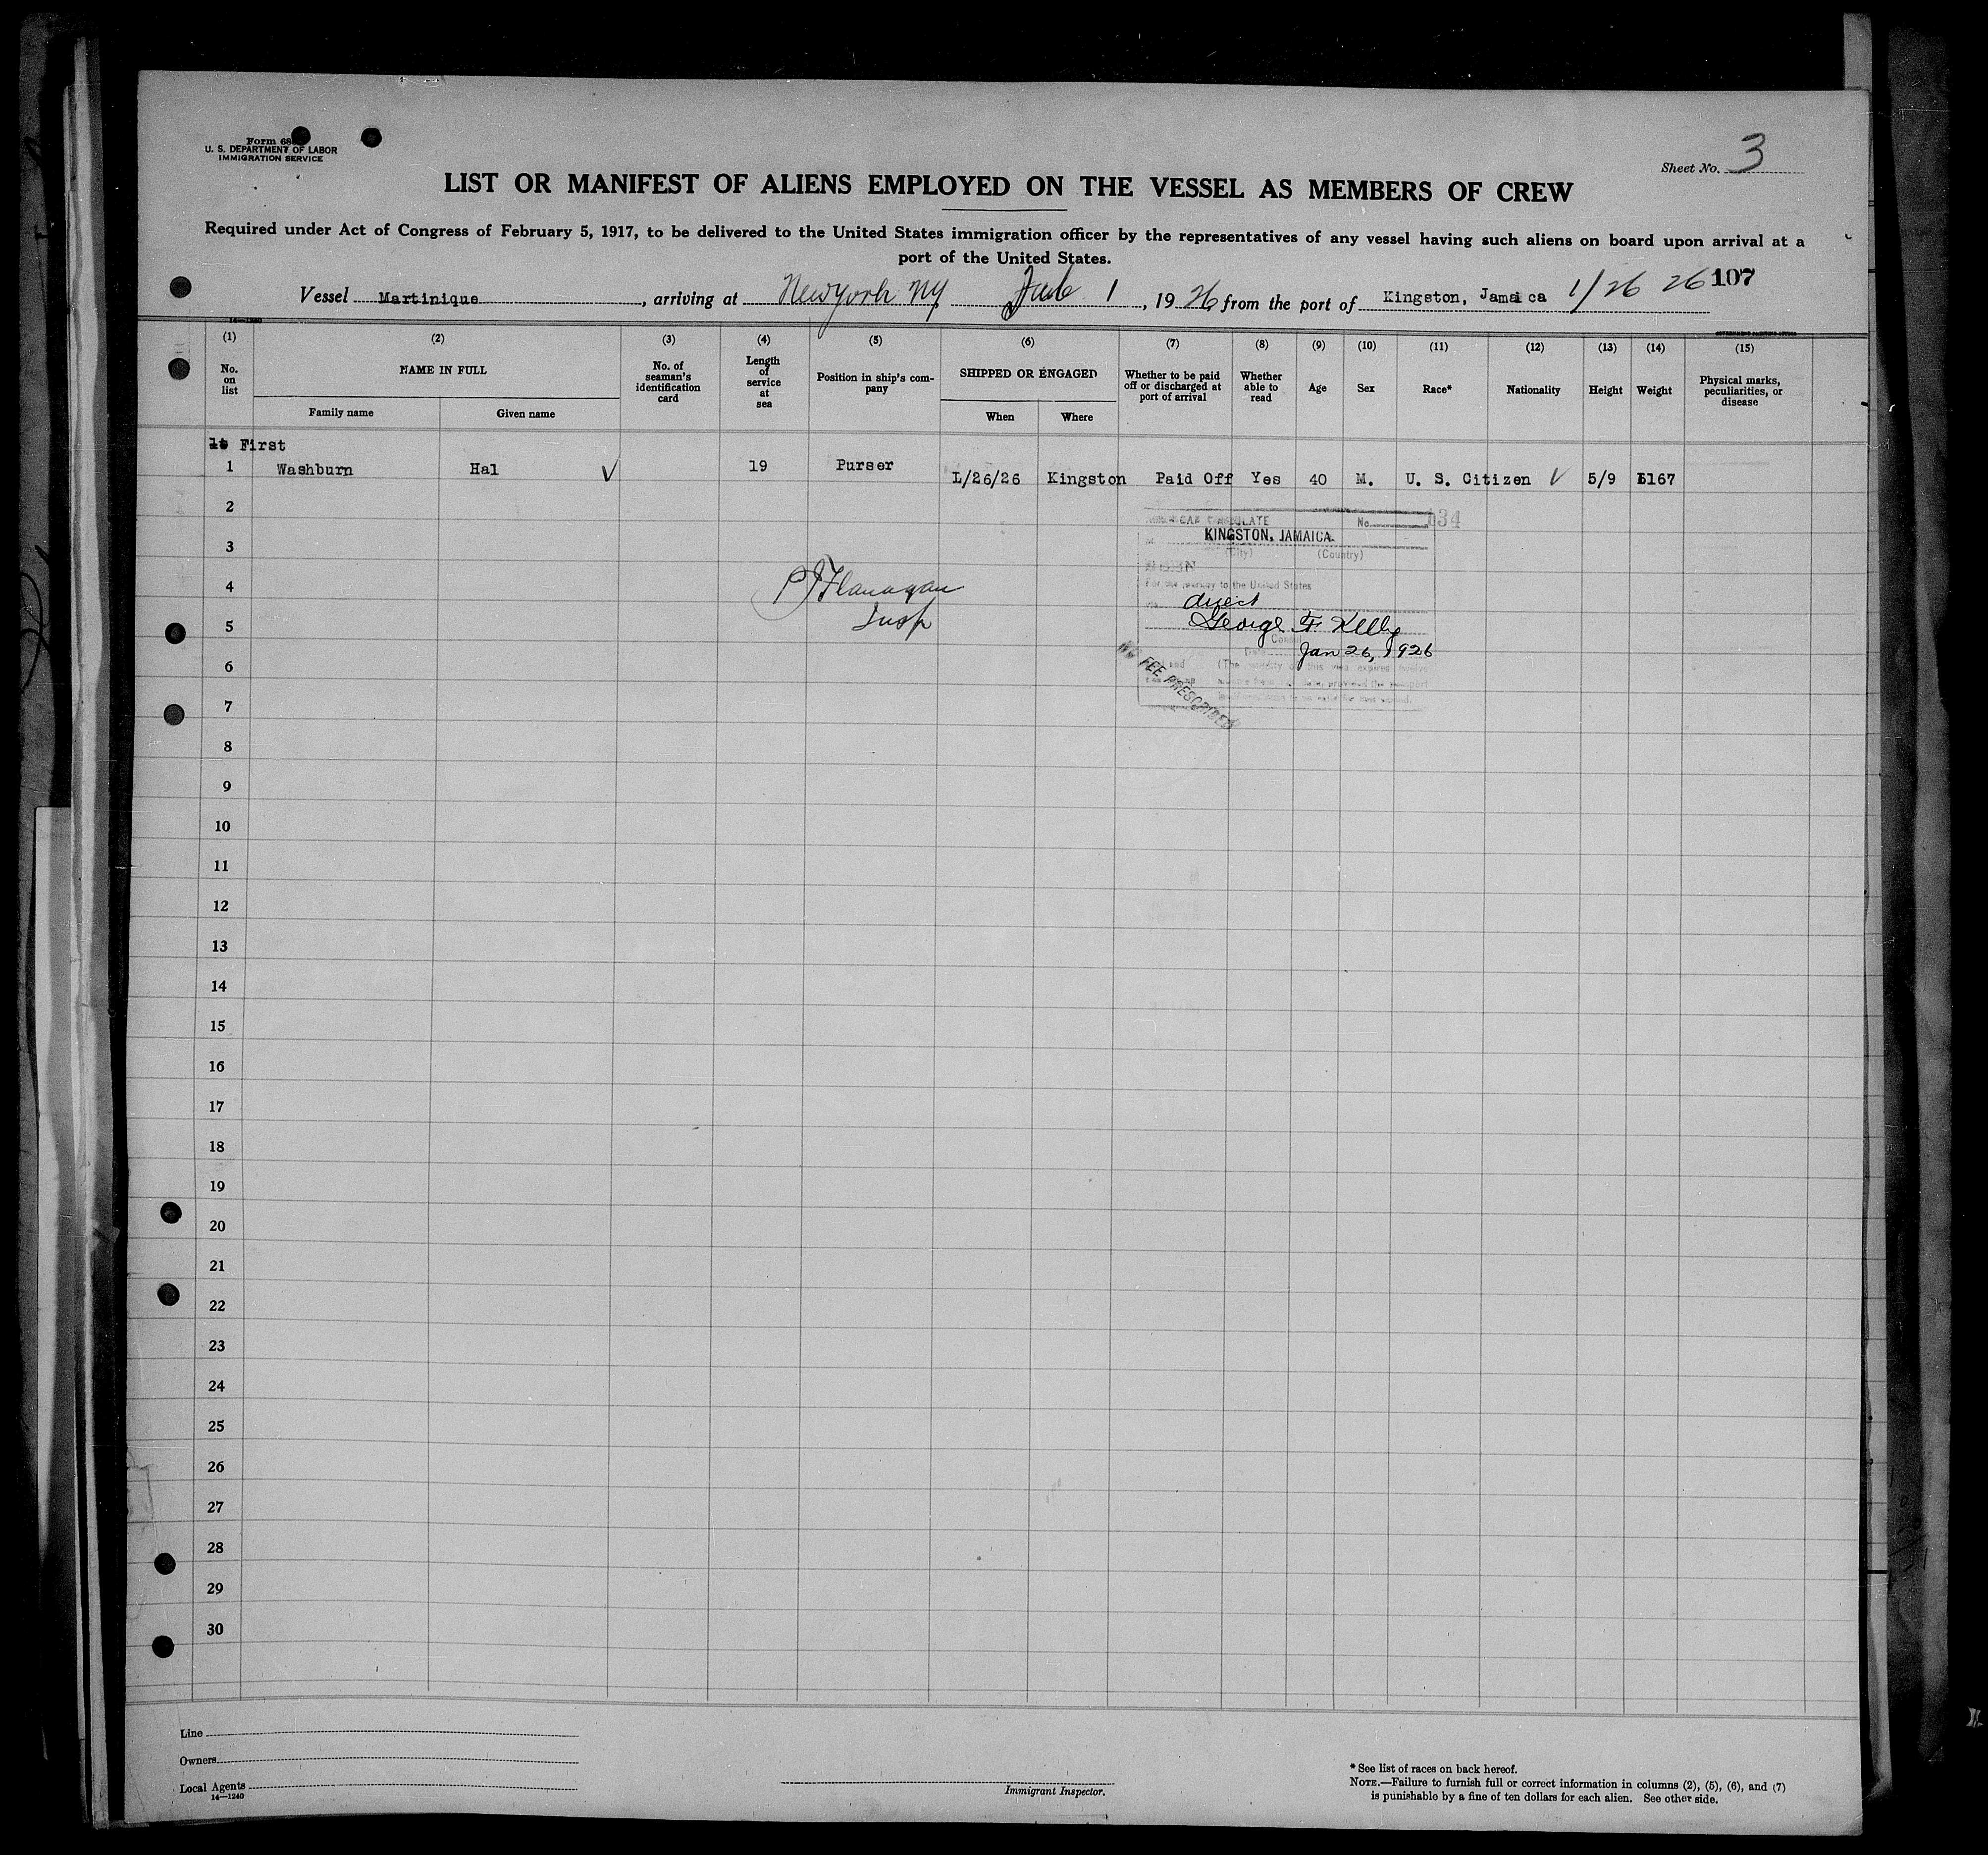 Form 68
U. S. DEPARTMENT OF LABOR
IMMIGRATION SERVICE
Sheet No. 3
LIST OR MANIFEST OF ALIENS EMPLOYED ON THE VESSEL AS MEMBERS OF CREW
Required under Act of Congress of February 5, 1917, to be delivered to the United States immigration officer by the representatives of any vessel having such aliens on board upon arrival at a
port of the United States.
Vessel Martinique, arriving at New York NY Feb 1, 1926, from the port of Kingston, Jamaica 1/26 26 107
14—1240
GOVERNMENT PRINTING OFFICE
(1) (2) (3) (4) (5) (6) (7) (8) (9) (10) (11) (12) (13) (14) (15)
No. on list
NAME IN FULL
Family name
Given name
No. of seaman's identification card
Length of service at sea
Position in ship's company
SHIPPED OR ENGAGED
When
Where
Whether to be paid off or discharged at port of arrival
Whether able to read
Age
Sex
Race*
Nationality
Height
Weight
Physical marks, peculiarities, or disease
First
1 Washburn Hal V 19 Purser L/26/26 Kingston Paid Off Yes 40 M. U. S. Citizen V 5/9 167
2
3
4
5
6
7
8
9
10
11
12
13
14
15
16
17
18
19
20
21
22
23
24
25
26
27
28
29
30
P J Flanagan
Insp
CONSULATE No. 134
KINGSTON, JAMAICA.
(City) (Country)
For the journey to the United States
direct
George F Kelly
Consul
Date Jan 26, 1926
NO FEE PRESCRIBED
Line
Owners
Local Agents
14—1240
Immigrant Inspector.
* See list of races on back hereof.
NOTE.—Failure to furnish full or correct information in columns (2), (5), (6), and (7)
is punishable by a fine of ten dollars for each alien. See other side.